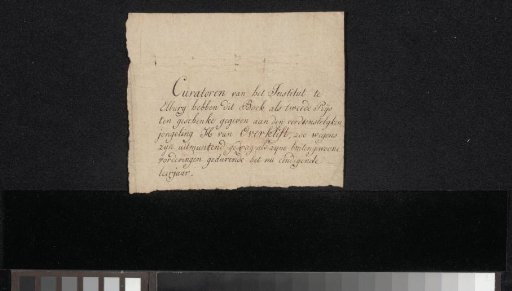 Curatoren van het Instituut te
Elburg hebben dit Boek als tweede Prijs
ten geschenke gegeven aan den verdienstelyken
jongeling H van Everskift, zoo wegens
zijn uitmuntend gedrag, als zijne buitengewoone
vorderingen gedurende het nu eindigende
leerjaar.